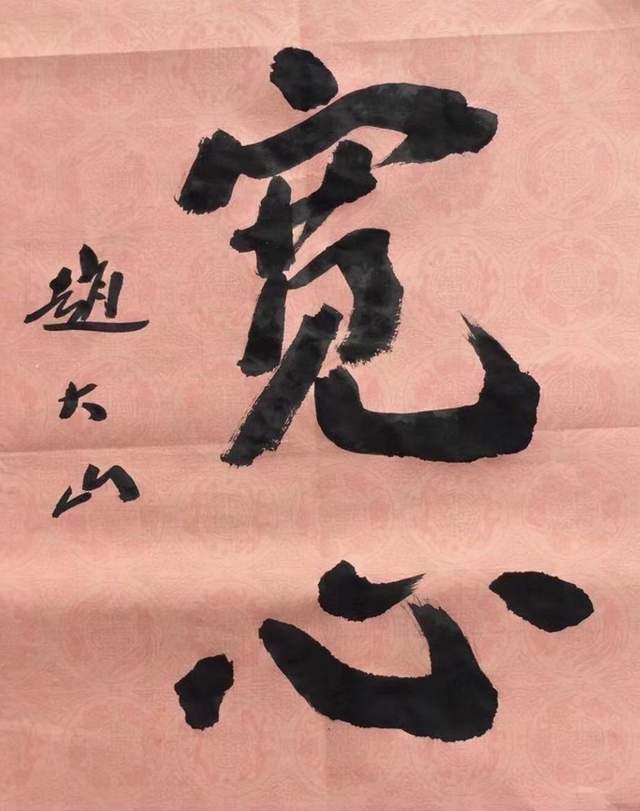 宽心
趙大山